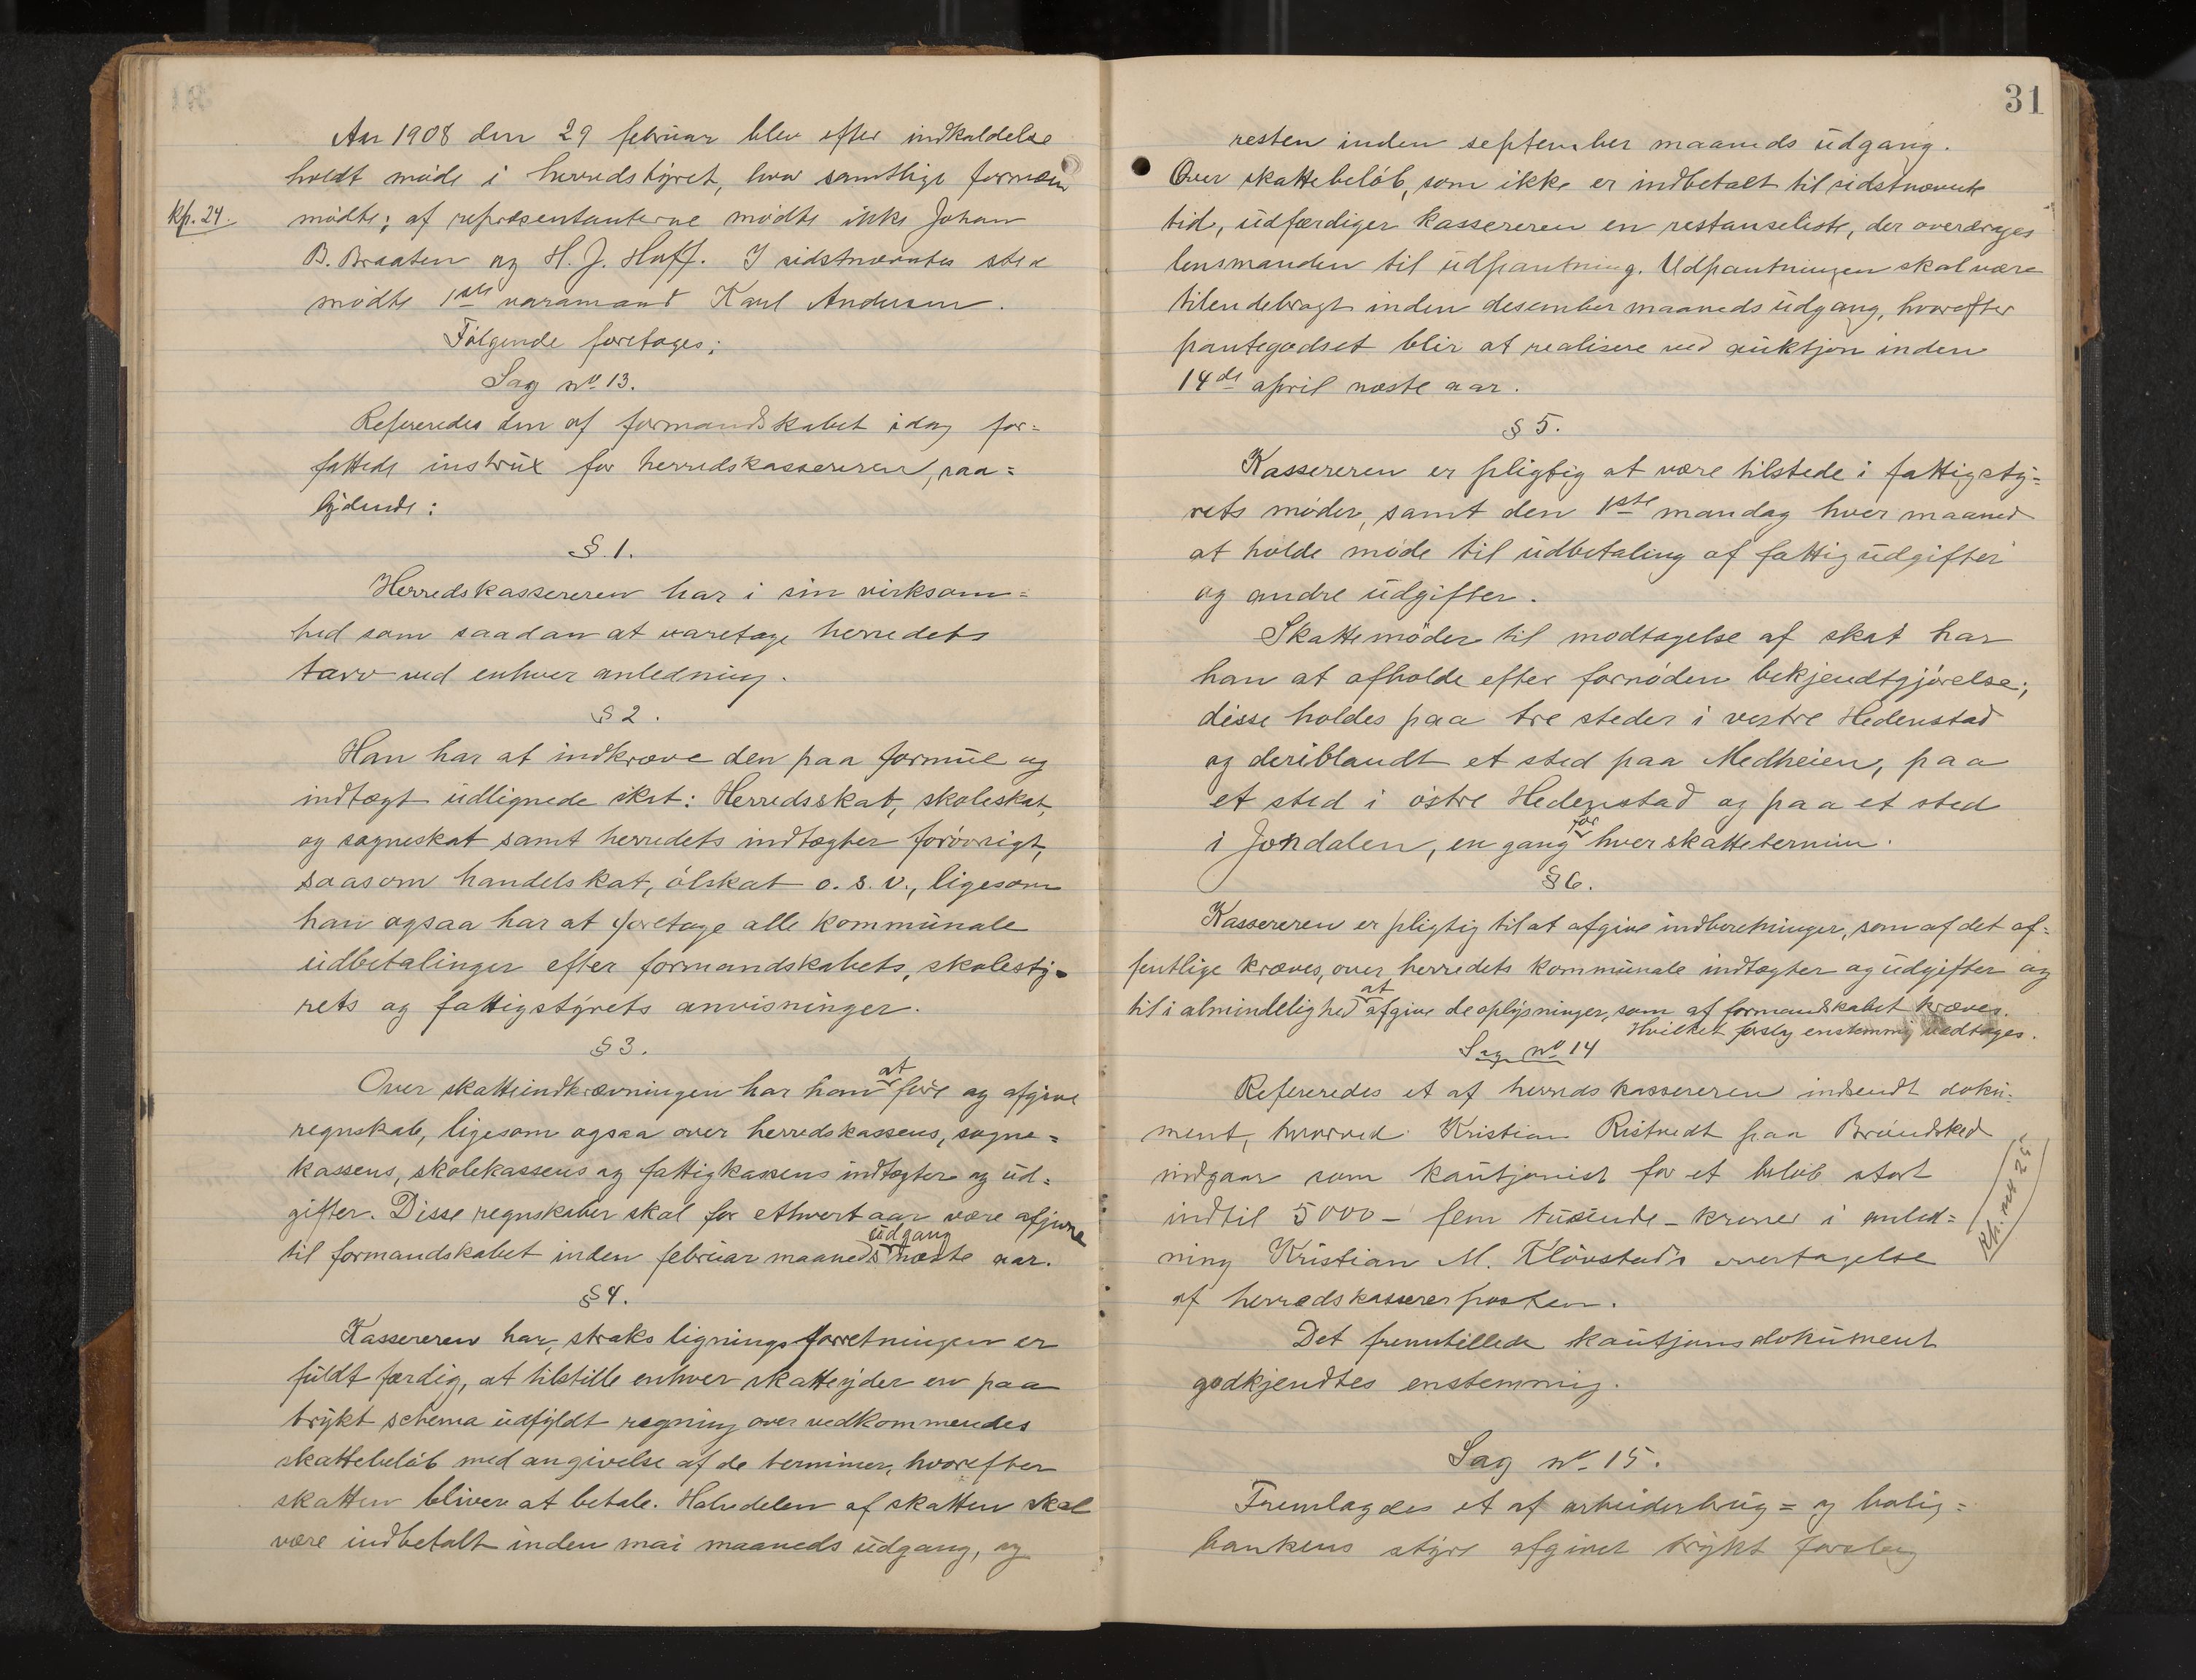 Aar 1908 den 29 februar blev efter indkaldelse
holdt møde i herredstyret, hvor samtlige formænd
Kp. 24. mødte; af repræsentanterne mødte ikke Johan
B. Braaten og H. J. Hoff. I sidstnævntes sted
mødte 1ste varamand Karl Andersen.
Følgende foretages:
Sag no 13.
Refereredes den af formandskabet idag for=
fattede instrux for herredskassereren, saa=
lydende:
§ 1.
Herredskassereren har i sin virksom=
hed som saadan at varetage herredets
tarv ved enhver anledning.
§ 2.
Han har at indkræve den paa formue og
indtægt udlignede skat: Herredsskat, skoleskat,
og sogneskat samt herredets indtægter forøvrigt,
saasom handelskat, ølskat o. s. v., ligesom
han ogsaa har at foretage alle kommunale
udbetalinger efter formandskabets, skolesty=
rets og fattigstyrets anvisninger.
§ 3.
Over skatteindkrævningen har han at føre og afgive
regnskab, ligesom ogsaa over herredskassens, sogne=
kassens, skolekassens og fattigkassens indtægter og ud=
gifter. Disse regnskaber skal for ethvert aar være afgivne
til formandskabet inden februar maaneds udgang næste aar.
§ 4.
Kassereren har, straks ligningsforretningen er
fuldt færdig, at tilstille enhver skatteyder en paa
trykt schema udfyldt regning over vedkommendes
skattebeløb med angivelse af de terminer, hvorefter
skatten bliver at betale. Halvdelen af skatten skal
være indbetalt inden mai maaneds udgang, og
31
resten inden september maaneds udgang.
Over skattebeløb, som ikke er indbetalt til sidstnævnte
tid, udfærdiger kassereren en restanseliste, der overdrages
lensmanden til udpantning. Udpantningen skal være
tilendebragt inden desember maaneds udgang, hvorefter
pantegodset blir at realisere ved auktjon inden
14de april næste aar.
§ 5.
Kassereren er pligtig at være tilstede i fattigsty=
rets møder, samt den 1ste mandag hver maaned
at holde møde til udbetaling af fattigudgifter
og andre udgifter.
Skattemøder til modtagelse af skat har
han at afholde efter fornøden bekjendtgjørelse;
disse holdes paa tre steder i vestre Hedenstad
og deriblandt et sted paa Medheien, paa
et sted i østre Hedenstad og paa et sted
i Jondalen, en gang for hver skattetermin.
§ 6.
Kassereren er pligtig til at afgive indberetninger, som af det of=
fentlige kræves, over herredets kommunale indtægter og udgifter og
til i almindelighed at afgive de oplysninger, som af formandskabet kræves.
Hvilket forslag enstemmig vedtages.
Sag no 14
Refereredes et af herredskassereren indsendt doku=
ment, hvorved Kristian Ristvedt paa Brundsked
indgaar som kautjonist for et beløb stort
indtil 5000 - fem tusende - kroner i anled=
ning Kristian M. Kløvstad's overtagelse
af herredskassererposten.
Det fremstillede kautjonsdokument
godkjendtes enstemmig.
Sag no 15.
Fremlagdes et af arbeiderbrug= og bolig=
bankens styre afgivet trykt forslag